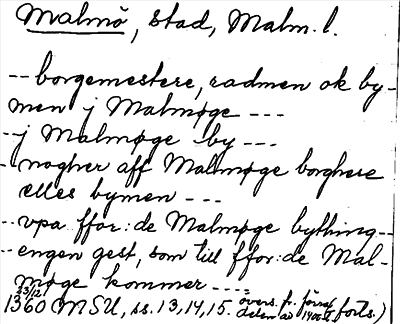 Malmö, stad, Malm. l.
-- borgemestere, radmen ok by-
men j Malmøge ---
-- j Malmøge by ---
- nogher aff Malmøge borghere
elles bymen ---
-- vpa ffor:de Malmøge bything --
-- engen gest, som till ffor:de Mal-
møge kommer ----
23/12
1360 MSU, ss. 13, 14, 15. övers. fr. förra
delen av 1400-t. forts.)